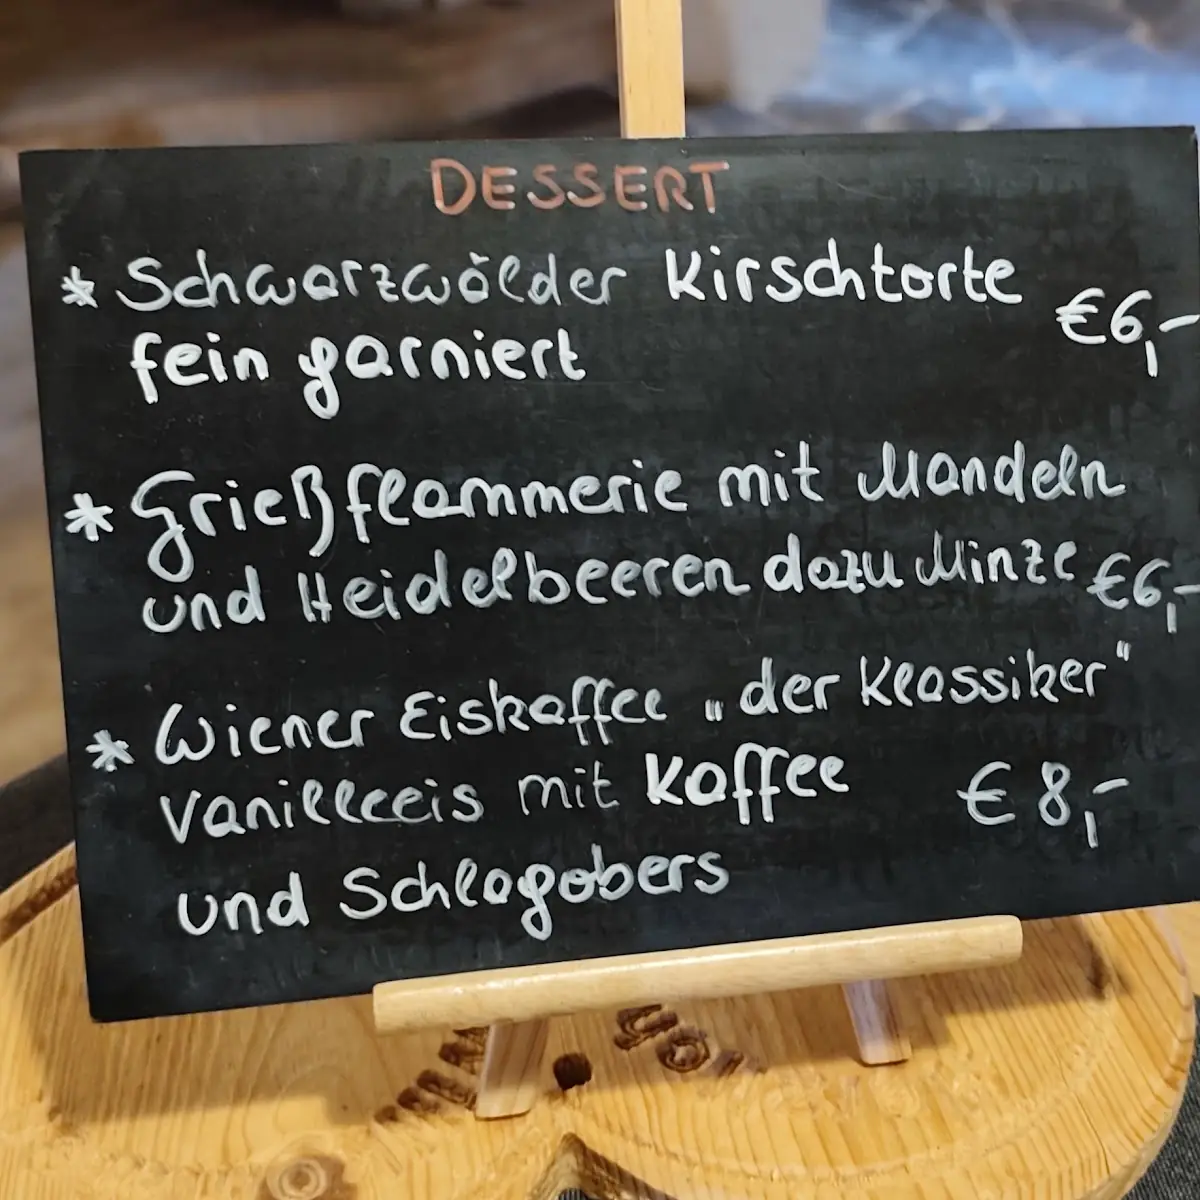 DESSERT
* Schwarzwälder Kirschtorte
€6,-
fein garniert
* Grießflammerie mit Mandeln
und Heidelbeeren dazu Minze €6,-
* Wiener Eiskaffee „der Klassiker"
Vanilleeis mit Kaffee € 8,-
und Schlagobers